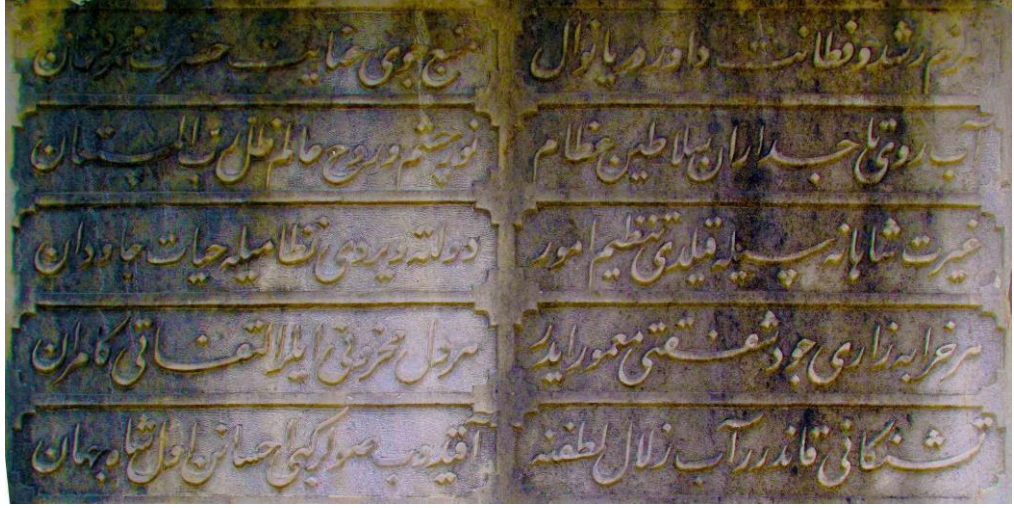 قلزم رشد و فطانت داور دریا نوال
منبع جوی عنایت حضرت
آب روی تاجداران سلاطین عظام
نور چشم و روح عالم ظل رب المستعان
غیرت شاهانه سیله قیلدی تنظیم امور
دولته ویردی نظامیله حیات جاودان
هر خرابه زاری جود شفقتی معمور ایدر
هر دل محزونی ایلر التفاتی کامران
تشنگانی قاندرر آب زلال لطفنه
آقیدوب صو کبی احسانن اول شاه جهان